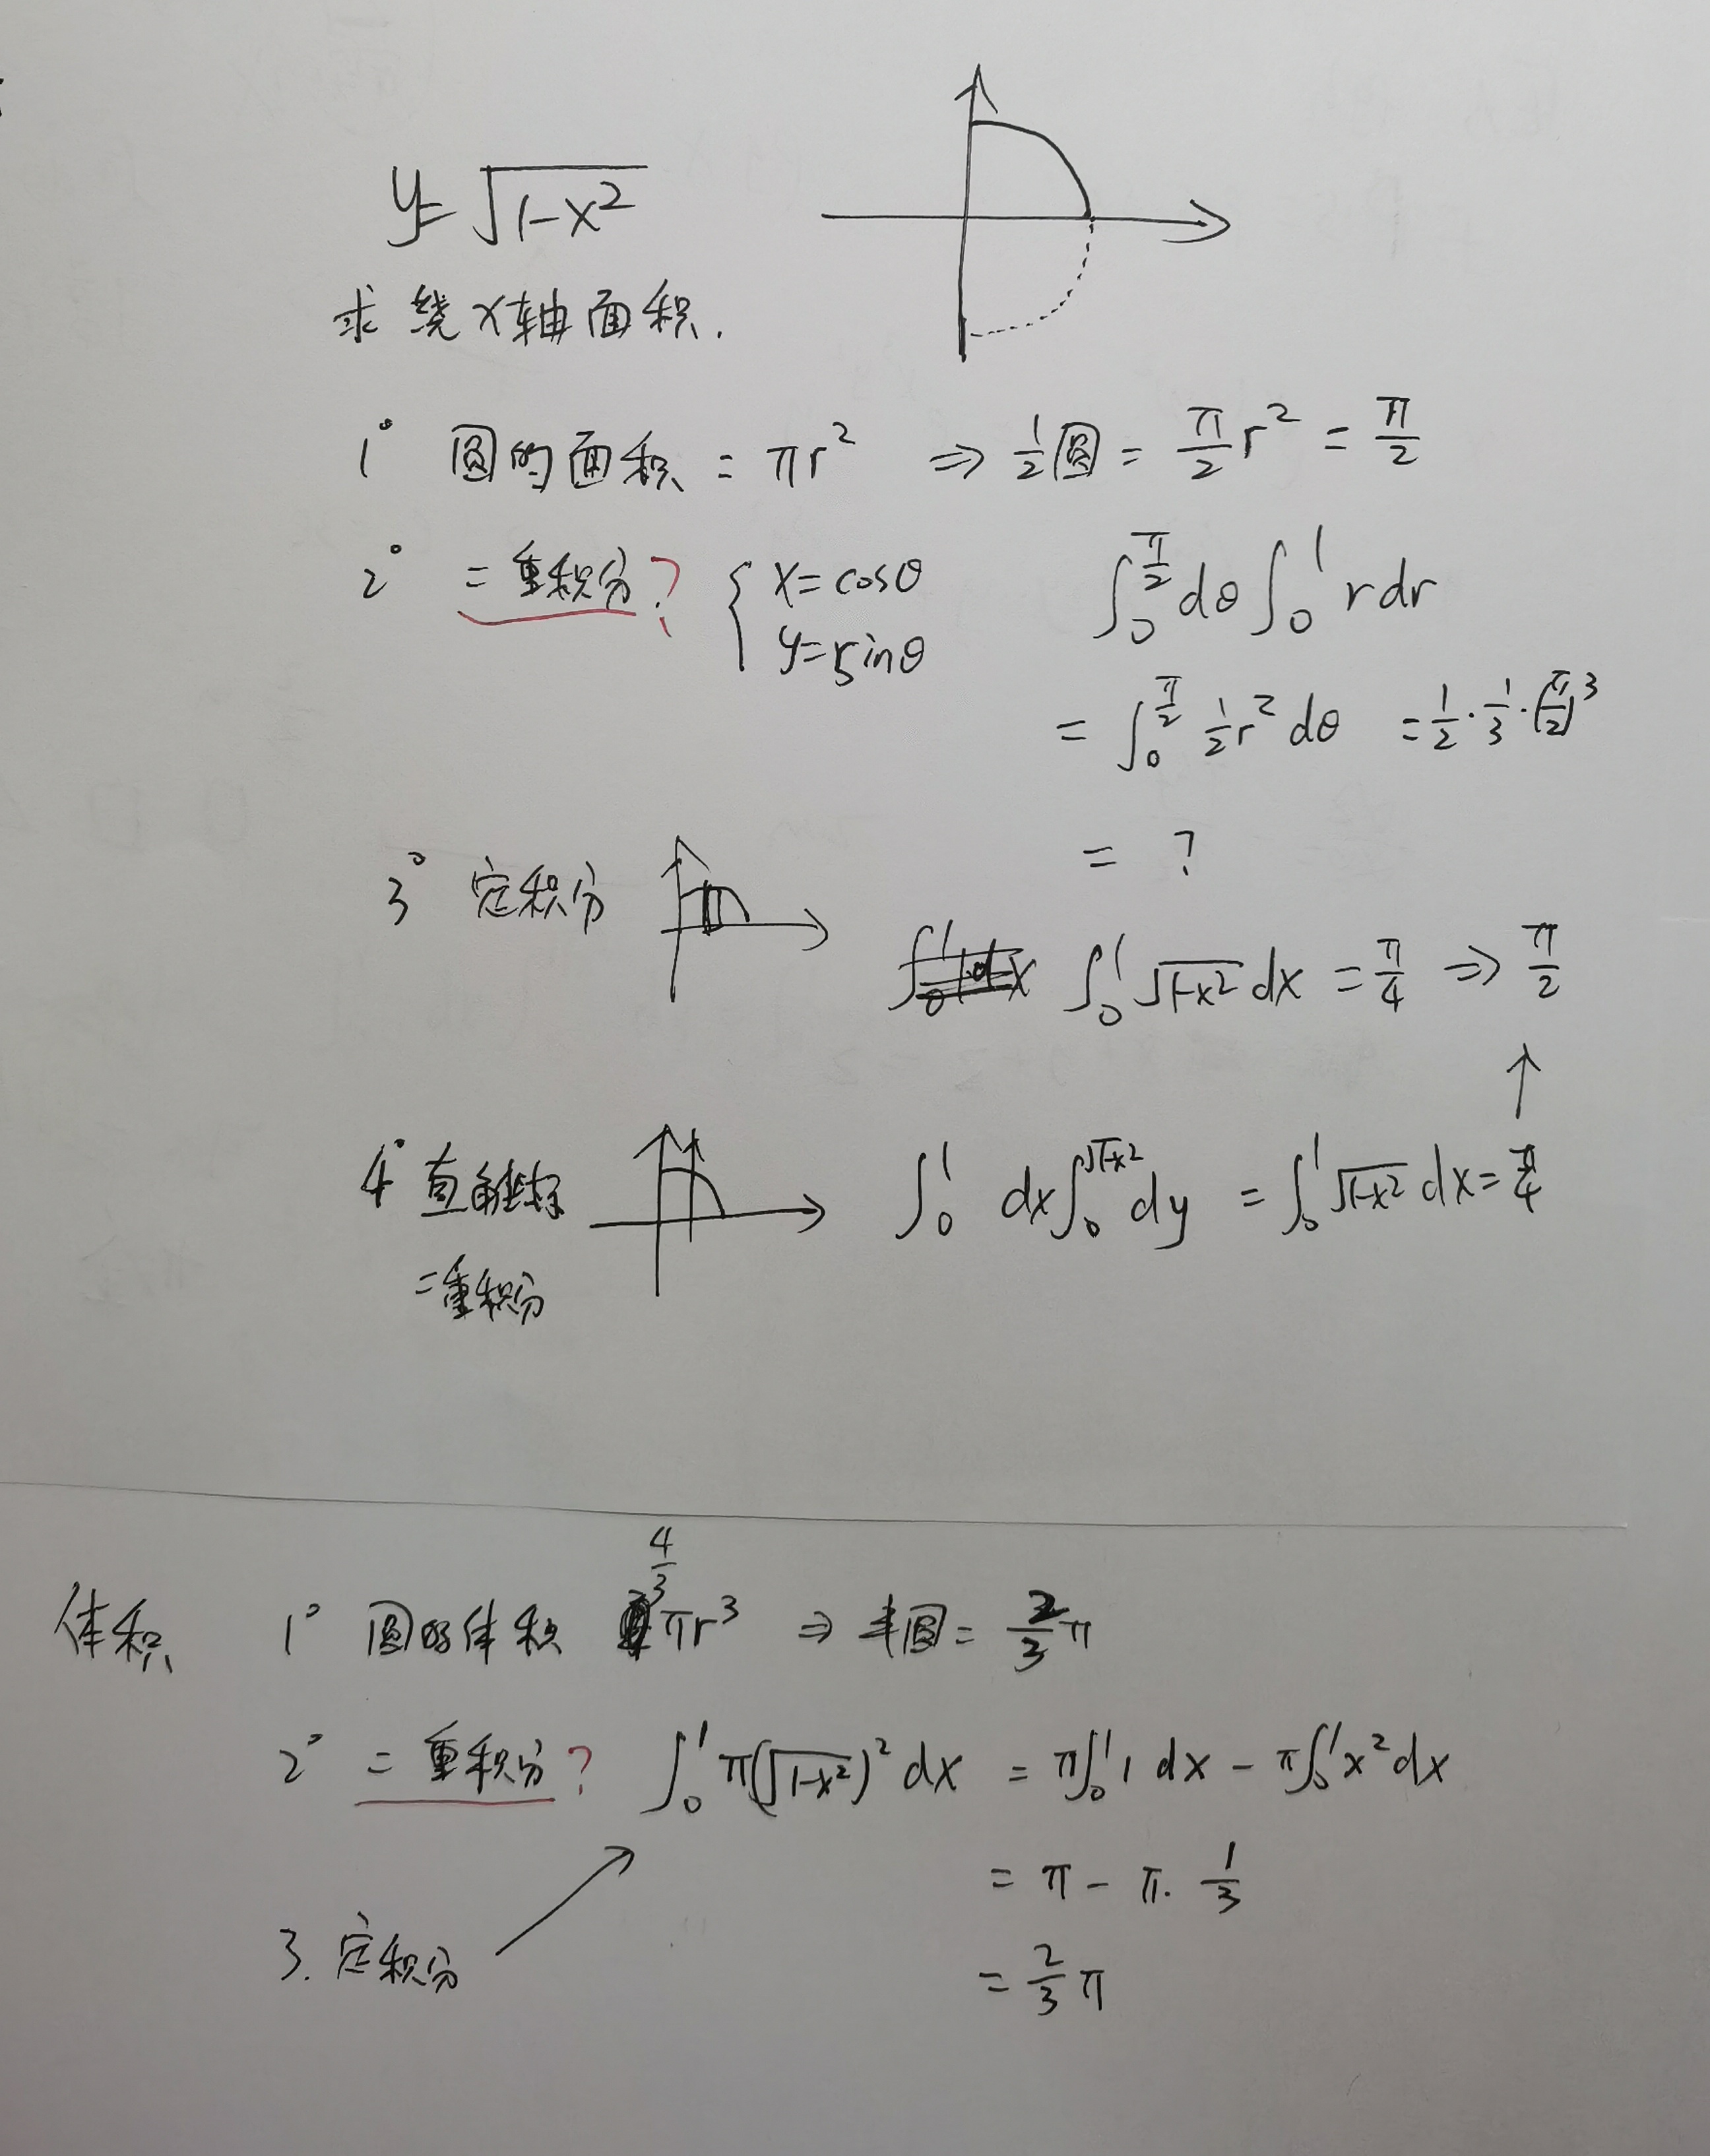 y=√(1-x²)
求绕x轴面积.
1° 圆的面积 = πr² ⇒ 1/2圆 = π/2 r² = π/2
2° 二重积分? { x=cosθ y=sinθ ∫₀^(π/2) dθ ∫₀¹ r dr
= ∫₀^(π/2) 1/2 r² dθ = 1/2 · 1/3 · (π/2)³
= ?
3° 定积分 ∫₀¹ √(1-x²) dx = π/4 ⇒ π/2
↑
4° 直角坐标 ∫₀¹ dx ∫₀^√(1-x²) dy = ∫₀¹ √(1-x²) dx = π/4
二重积分
体积 1° 圆的体积 4/3 πr³ ⇒ 半圆 = 2/3 π
2° 二重积分? ∫₀¹ π(√(1-x²))² dx = π∫₀¹ 1 dx - π∫₀¹ x² dx
= π - π · 1/3
3. 定积分
= 2/3 π